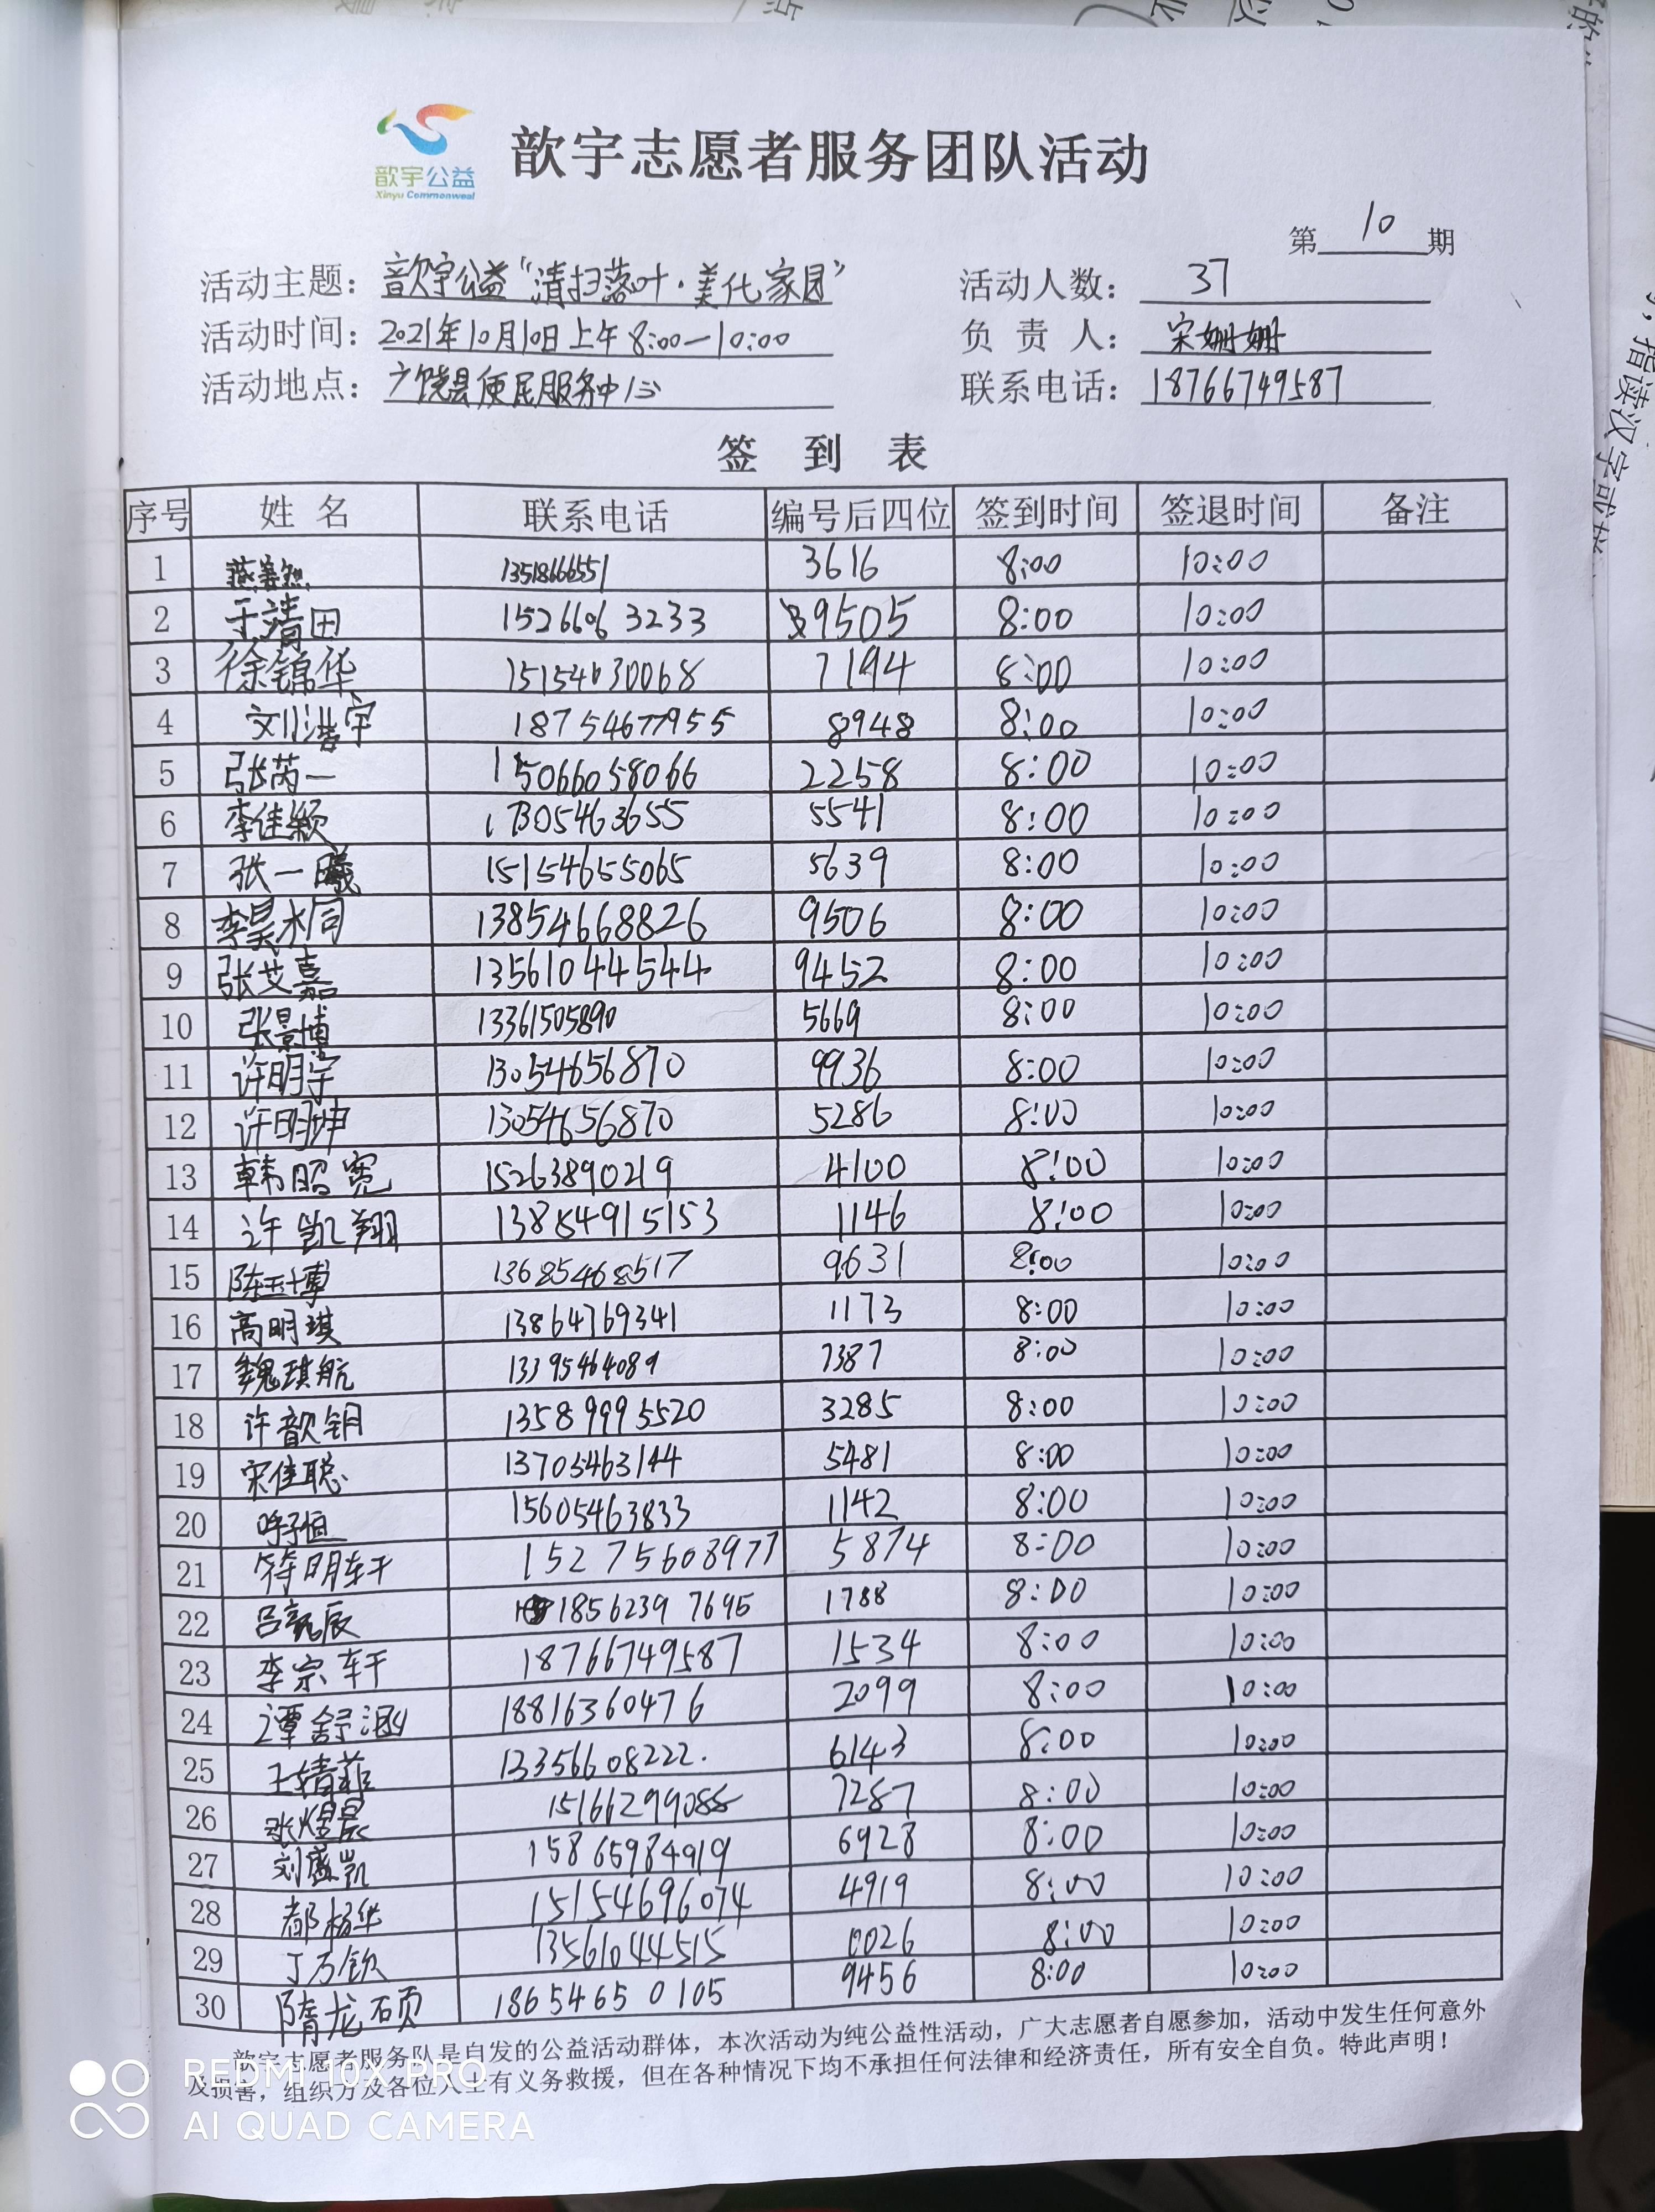 歆宇公益
Xinyu Commonweal
歆宇志愿者服务团队活动
第 10 期
活动主题：歆宇公益“清扫落叶·美化家园” 活动人数：37
活动时间：2021年10月10日上午8:00—10:00 负责人：宋姗姗
活动地点：广饶县便民服务中心 联系电话：18766749587
签到表
序号 姓名 联系电话 编号后四位 签到时间 签退时间 备注
1 13518666551 3616 8:00 10:00
2 于清田 15266063233 9505 8:00 10:00
3 徐锦华 15154630068 7194 8:00 10:00
4 刘浩宇 18754677955 8948 8:00 10:00
5 张芮一 15066058066 2258 8:00 10:00
6 李佳颖 17305463655 5541 8:00 10:00
7 张一曦 15154655065 5639 8:00 10:00
8 李昊水同 13854668826 9506 8:00 10:00
9 张艾嘉 13561044544 9452 8:00 10:00
10 张景博 13361505890 5669 8:00 10:00
11 许明宇 13054656870 9936 8:00 10:00
12 许明坤 13054656870 5286 8:00 10:00
13 韩昭宽 15263890219 4100 8:00 10:00
14 许凯翔 13884915153 1146 8:00 10:00
15 陈玉博 13685468517 9631 8:00 10:00
16 高明琪 13864769341 1173 8:00 10:00
17 魏琪航 13395464089 7387 8:00 10:00
18 许歆钥 13589995520 3285 8:00 10:00
19 宋佳聪 13705463144 5481 8:00 10:00
20 呼子恒 15605463833 1142 8:00 10:00
21 符明轩 15275608977 5874 8:00 10:00
22 吕 辰 18562397695 1788 8:00 10:00
23 李宗轩 18766749587 1534 8:00 10:00
24 谭舒泓 18816360476 2099 8:00 10:00
25 王婧菲 13356608222. 6143 8:00 10:00
26 张煜晨 15166299088 7287 8:00 10:00
27 刘盛凯 15865984919 6928 8:00 10:00
28 都杨华 15154696074 4919 8:00 10:00
29 丁万钦 13561044515 0026 8:00 10:00
30 隋龙硕 18654650105 9456 8:00 10:00
歆宇志愿者服务队是自发的公益活动群体，本次活动为纯公益性活动，广大志愿者自愿参加，活动中发生任何意外
及损害，组织方及各位人士有义务救援，但在各种情况下均不承担任何法律和经济责任，所有安全自负。特此声明！
REDMI 10X PRO
AI QUAD CAMERA
指读汉字或